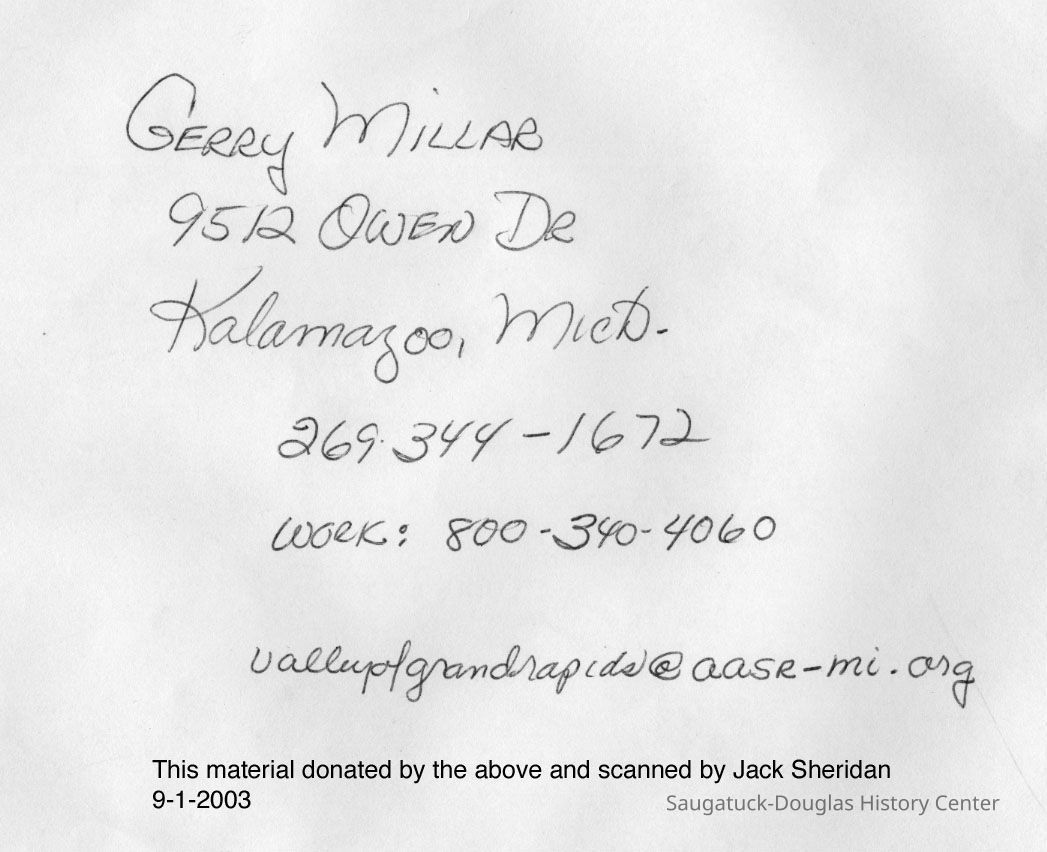 Gerry Millar
9512 Owen Dr
Kalamazoo, Mich.
269.344-1672
Work: 800-340-4060
valleyofgrandrapids@aasr-mi.org
This material donated by the above and scanned by Jack Sheridan
9-1-2003
Saugatuck-Douglas History Center